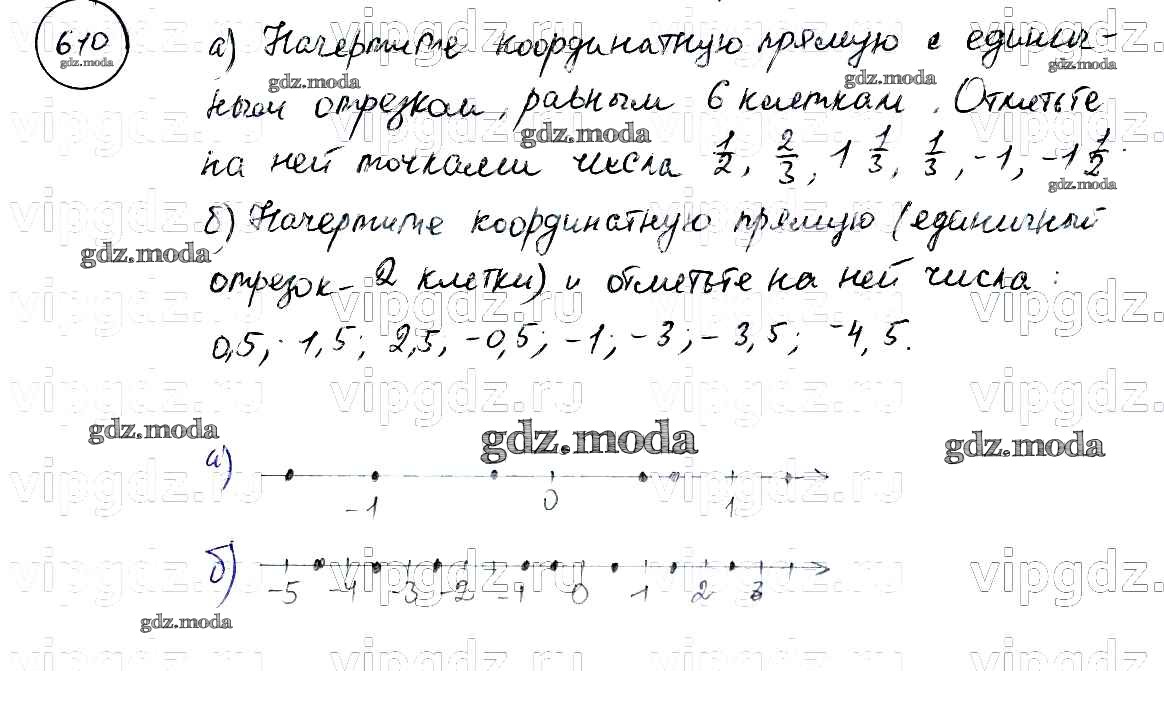 610
а) Начертите координатную прямую с единич-
ным отрезком, равным 6 клеткам. Отметьте
на ней точками числа 1/2, 2/3, 1 1/3, 1/3, -1, -1 1/2.
б) Начертите координатную прямую (единичный
отрезок - 2 клетки) и отметьте на ней числа:
0,5; 1,5; 2,5, -0,5; -1; -3; -3,5; -4,5.
а)
-1 0 1
б)
-5 -4 -3 -2 -1 0 1 2 3
gdz.moda
vipgdz.ru